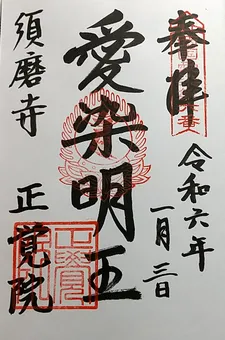 奉拝
令和六年
一月三日
愛染明王
須磨寺 正覚院
正覺院